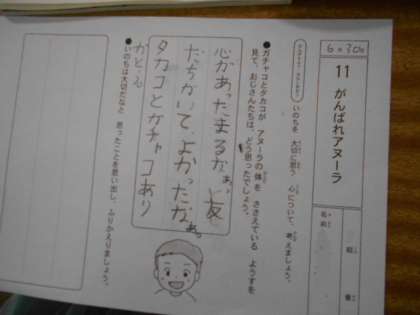 6月30日
11 がんばれアヌーラ
組
番
名前
いのちを 大切に思う 心について、考えましょう。
●ガチャコとタカコが アヌーラの体を ささえている ようすを
見て、おじさんたちは、どう思ったでしょう。
心があったまるなぁ。友
だちがいて、よかったなぁ。
タカコとガチャコあり
がとう
●いのちは大切だなと 思ったことを思い出し、ふりかえりましょう。